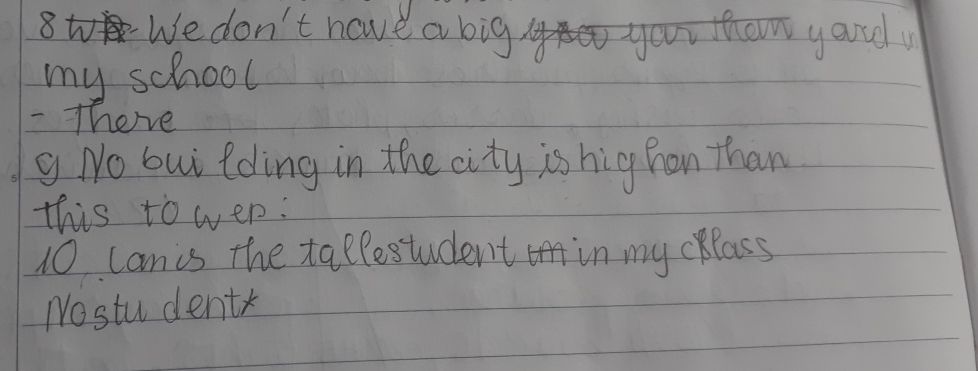 8 We don't have a big yard in
my school
- There
9 No building in the city is highon than
this tower:
10, Lan is the tallestudent in my class
No student